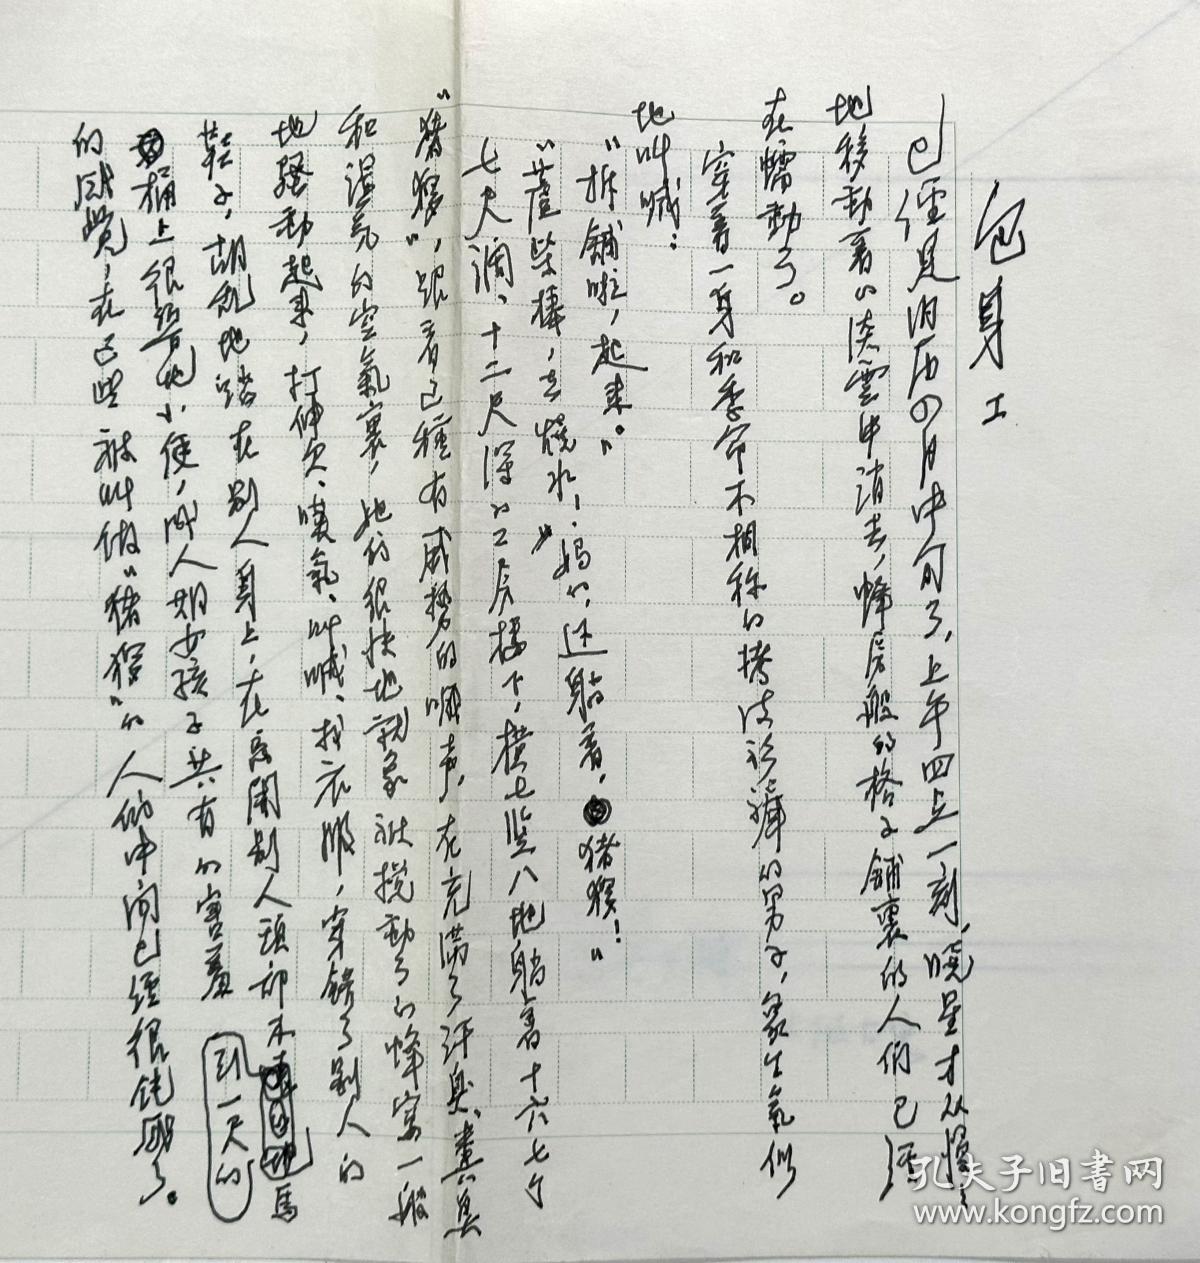 包身工
已經是旧历四月中旬了，上午四点一刻，晓星才从慢慢
地移動着的淡雲中消去，蜂房般的格子鋪裏的人們已經
在蠕動了。
穿着一身和季节不相称的拷皮衫褲的男子，象生氣似
地叫喊：
“拆鋪啦，起来。”
“芦柴棒，去燒水，妈的，还躺着，猪猡！”
七尺濶、十二尺深的工房楼下，横七竖八地躺着十六七个
“猪猡”，跟着这種有威势的喊声，在充滿了汗臭、糞臭
和湿気的空氣裏，她们很快地就象被搅動了的蜂窩一般
地騷動起来，打伸欠、嘆氣、叫喊、找衣服，穿錯了别人的
鞋子，胡乱地踏在别人身上，在离開别人頭部不到一尺的馬
桶上很响地小便，成人期女孩子共有的害羞
的感覺，在这些被叫做“猪猡”的人们中间已經很鈍感了。
孔夫子旧書网
www.kongfz.com